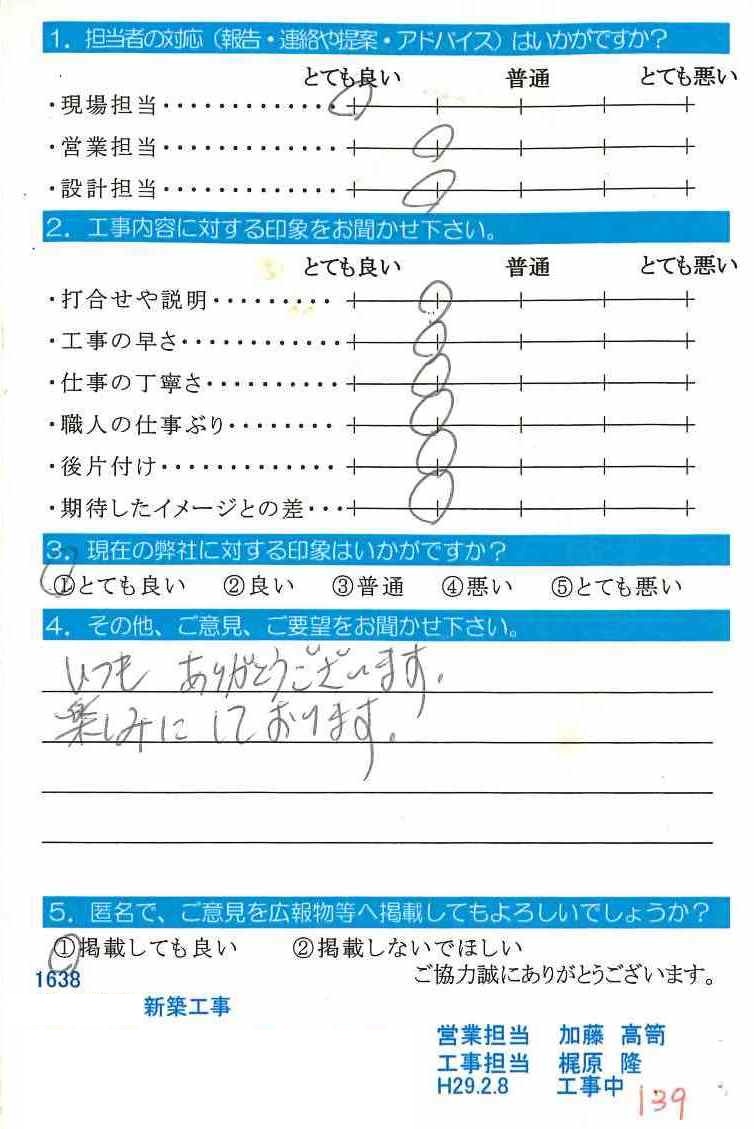 1. 担当者の対応（報告・連絡や提案・アドバイス）はいかがですか？
とても良い 普通 とても悪い
・現場担当・・・・・・・・・・・・・
・営業担当・・・・・・・・・・・・・
・設計担当・・・・・・・・・・・・・
2. 工事内容に対する印象をお聞かせ下さい。
とても良い 普通 とても悪い
・打合せや説明・・・・・・・・・
・工事の早さ・・・・・・・・・・・・
・仕事の丁寧さ・・・・・・・・・・
・職人の仕事ぶり・・・・・・・・
・後片付け・・・・・・・・・・・・・
・期待したイメージとの差・・・
3. 現在の弊社に対する印象はいかがですか？
①とても良い ②良い ③普通 ④悪い ⑤とても悪い
4. その他、ご意見、ご要望をお聞かせ下さい。
いつも ありがとうございます。
楽しみに しております。
5. 匿名で、ご意見を広報物等へ掲載してもよろしいでしょうか？
①掲載しても良い ②掲載しないでほしい
1638 ご協力誠にありがとうございます。
新築工事
営業担当 加藤 高笥
工事担当 梶原 隆
H29.2.8 工事中
139